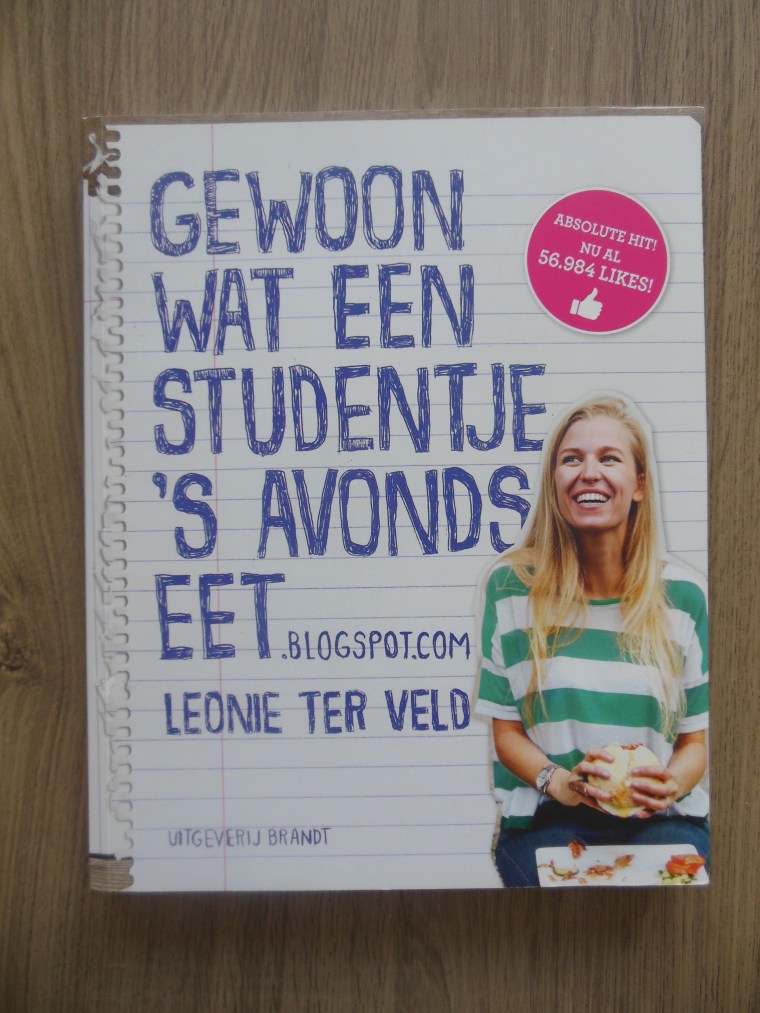 GEWOON
WAT EEN
STUDENTJE
'S AVONDS
EET.BLOGSPOT.COM
LEONIE TER VELD
UITGEVERIJ BRANDT
ABSOLUTE HIT!
NU AL
56.984 LIKES!